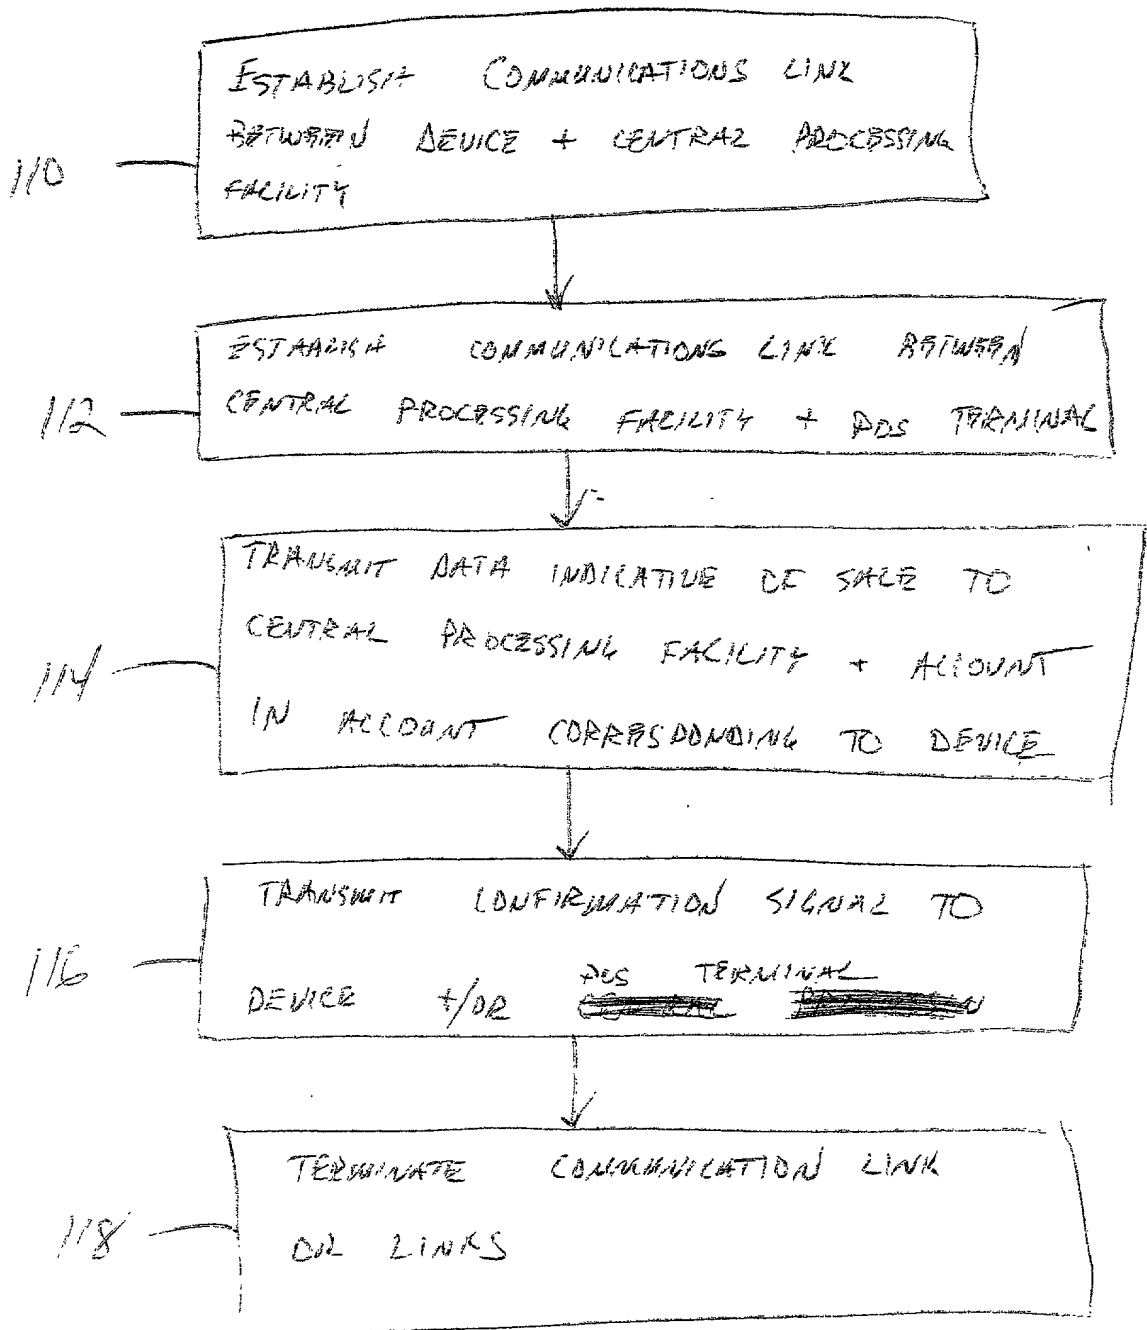 ESTABLISH COMMUNICATIONS LINK
BETWEEN DEVICE + CENTRAL PROCESSING
FACILITY
110
ESTABLISH COMMUNICATIONS LINK BETWEEN
CENTRAL PROCESSING FACILITY + POS TERMINAL
112
TRANSMIT DATA INDICATIVE OF SALE TO
CENTRAL PROCESSING FACILITY + ACCOUNT
IN ACCOUNT CORRESPONDING TO DEVICE
114
TRANSMIT CONFIRMATION SIGNAL TO
POS TERMINAL
DEVICE +/OR
116
TERMINATE COMMUNICATION LINK
OR LINKS
118